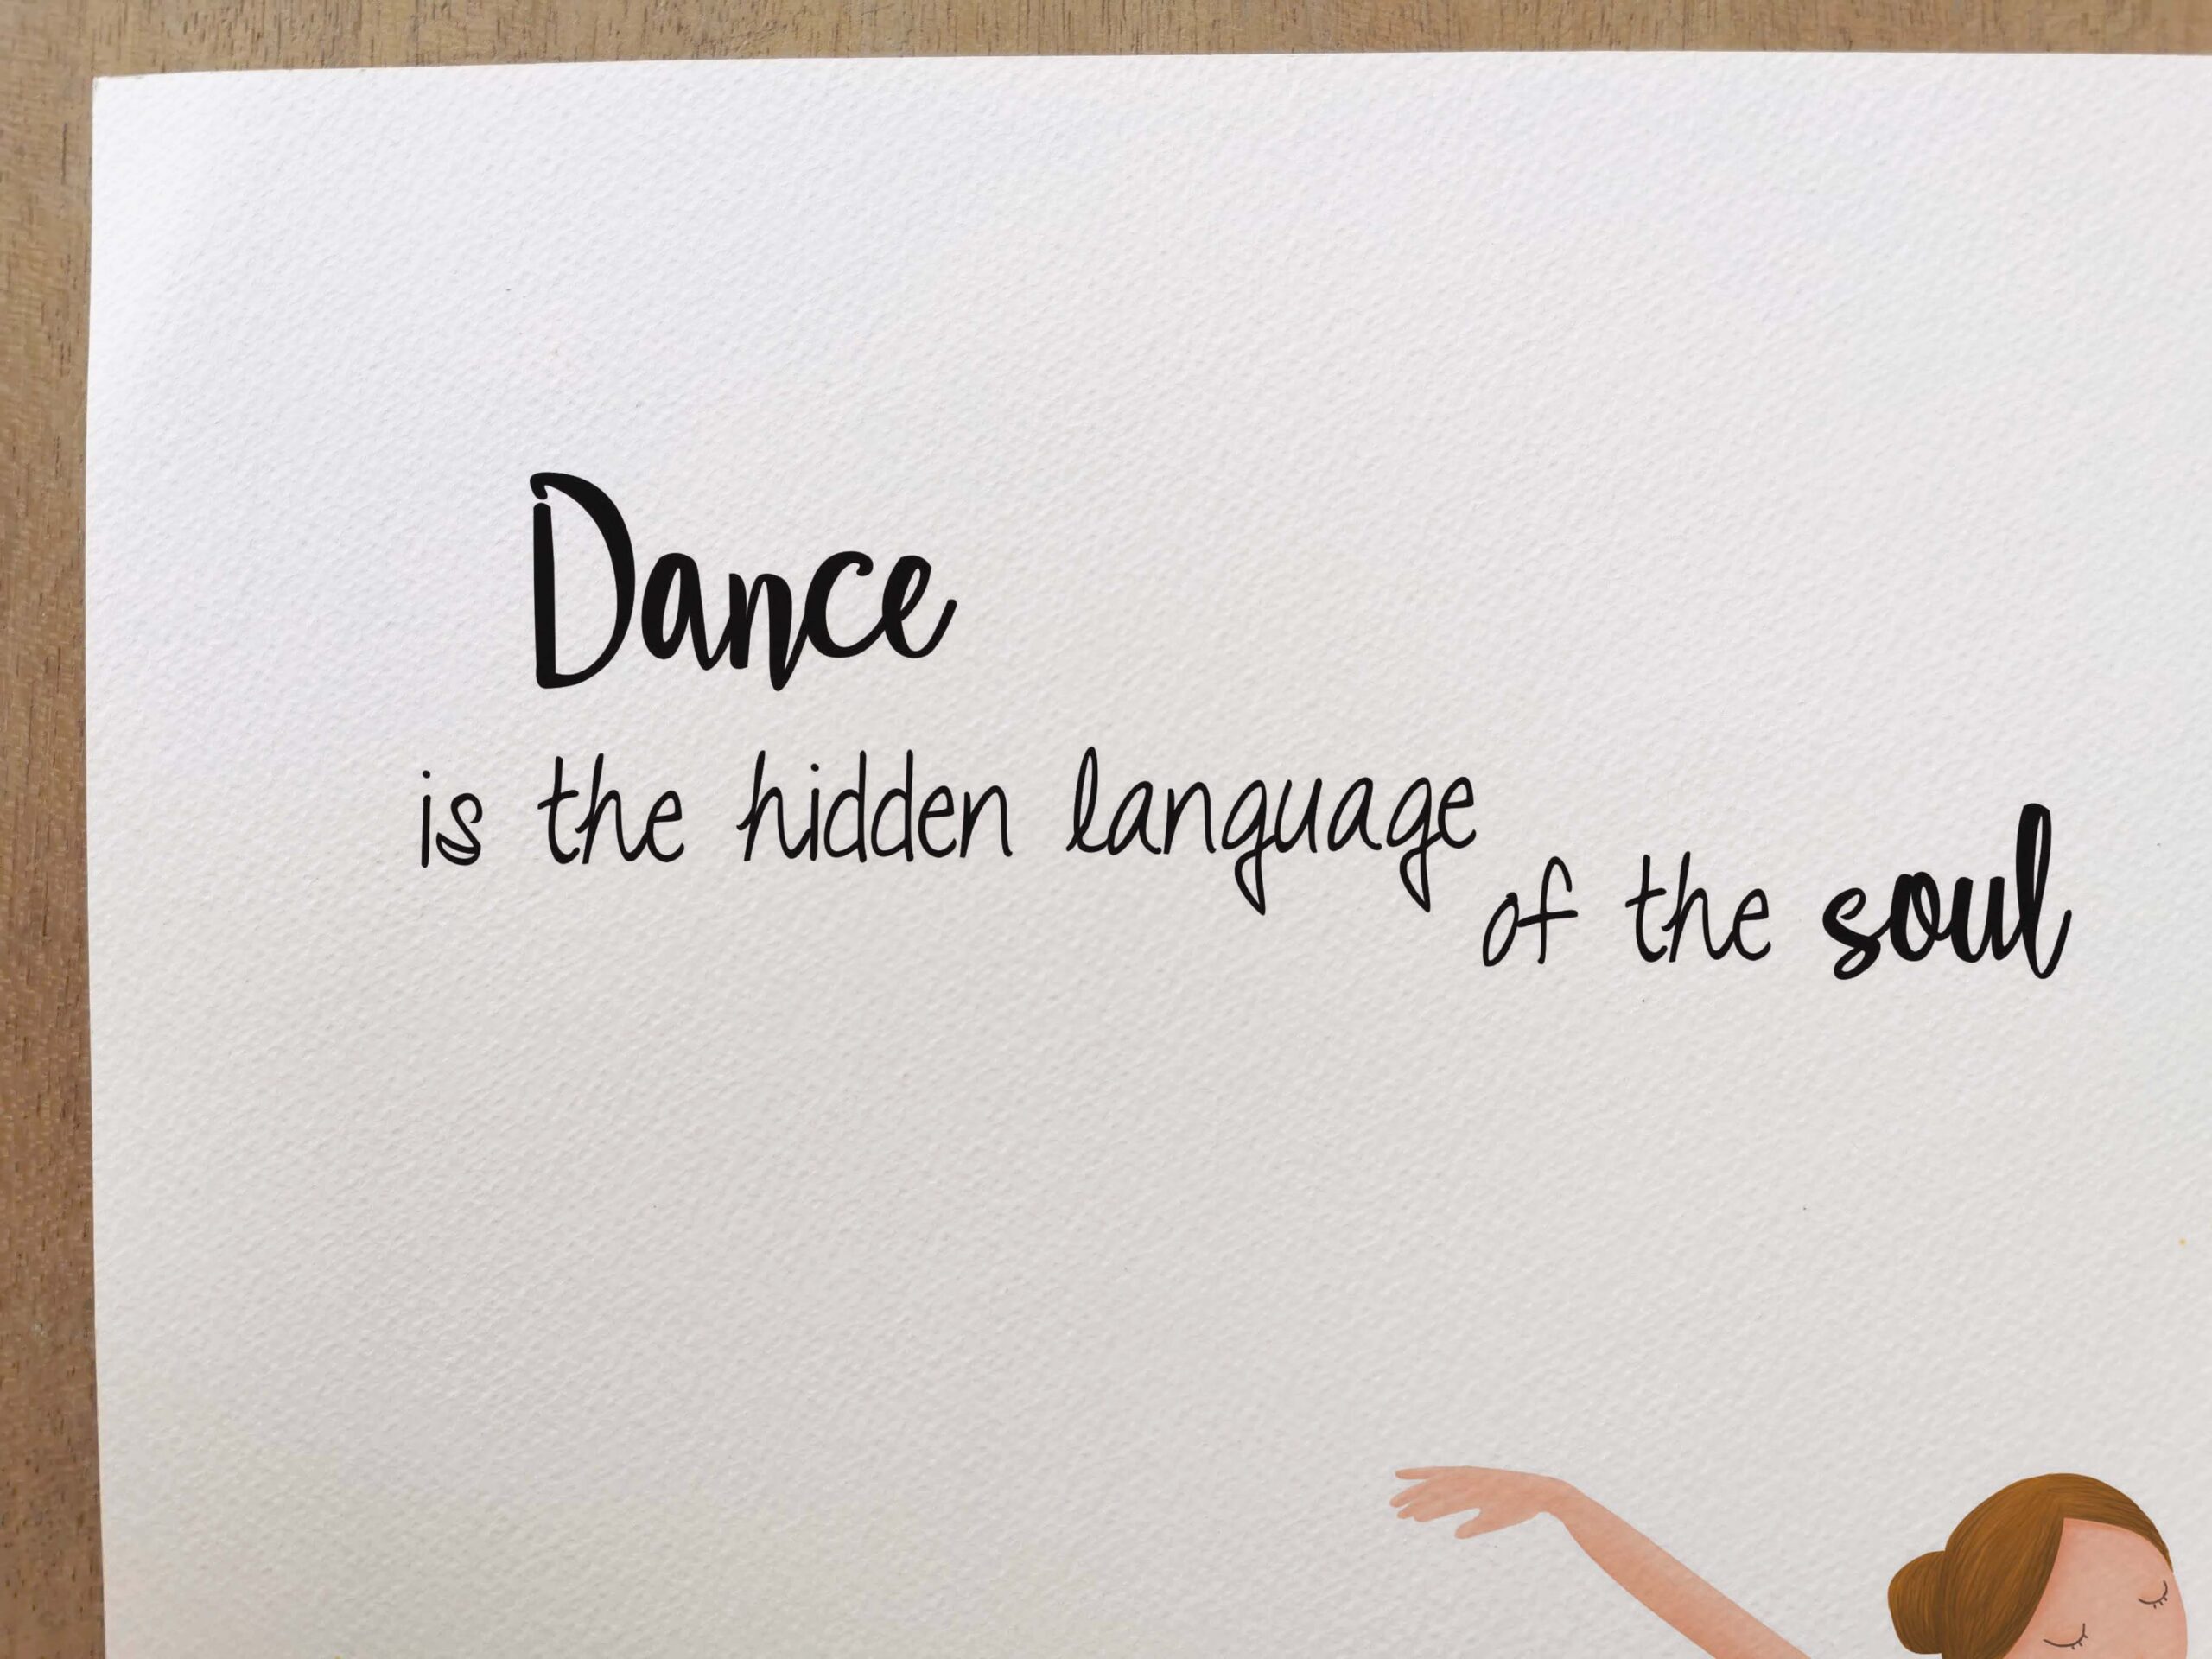 Dance
is the hidden language
of the soul